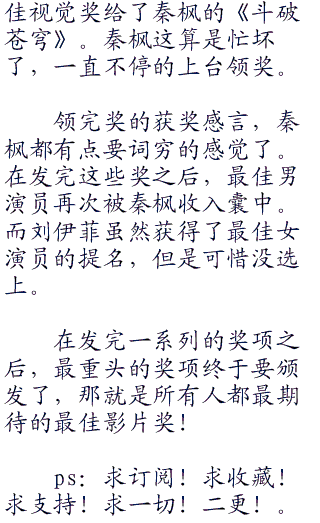 佳视觉奖给了秦枫的《斗破
苍穹》。秦枫这算是忙坏
了，一直不停的上台领奖。
领完奖的获奖感言，秦
枫都有点要词穷的感觉了。
在发完这些奖之后，最佳男
演员再次被秦枫收入囊中。
而刘伊菲虽然获得了最佳女
演员的提名，但是可惜没选
上。
在发完一系列的奖项之
后，最重头的奖项终于要颁
发了，那就是所有人都最期
待的最佳影片奖！
ps：求订阅！求收藏！
求支持！求一切！二更！。